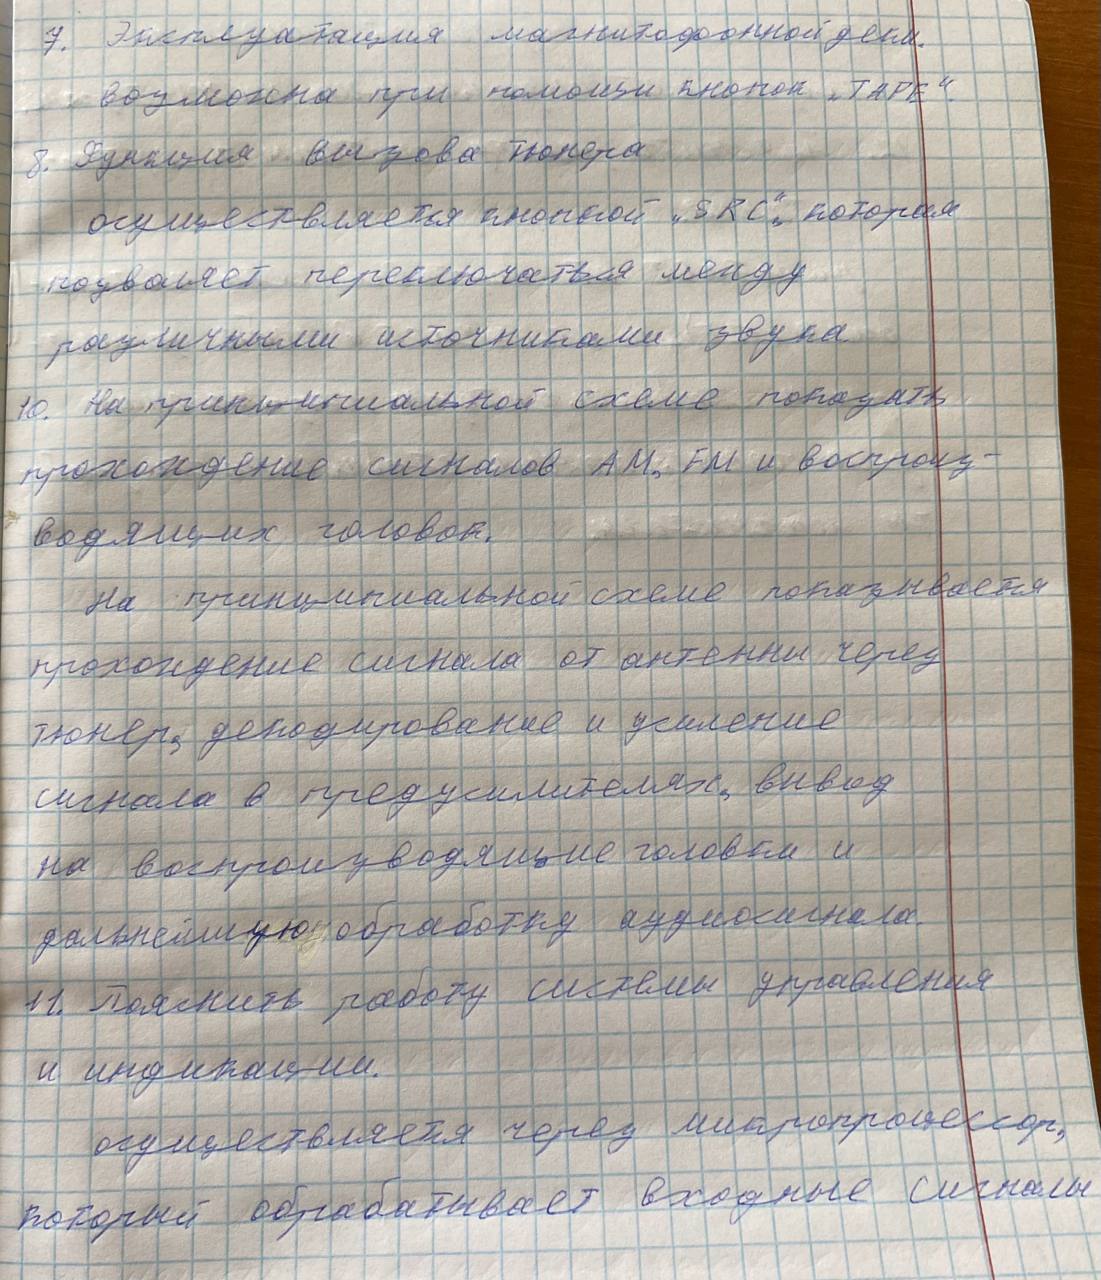 7. Эксплуатация магнитофонной деки.
возможна при помощи кнопок „TAPE“.
8. Функция вызова тюнера
осуществляется кнопкой „SRC“, которая
позволяет переключаться между
различными источниками звука
10. На принципиальной схеме показать
прохождение сигналов AM, FM и воспроиз-
водящих головок.
На принципиальной схеме показывается
прохождение сигнала от антенны через
тюнер, декодирование и усиление
сигнала в предусилителях, вывод
на воспроизводящие головки и
дальнейшую обработку аудиосигнала.
11. Пояснить работу системы управления
и индикации.
осуществляется через микропроцессор,
который обрабатывает входные сигналы